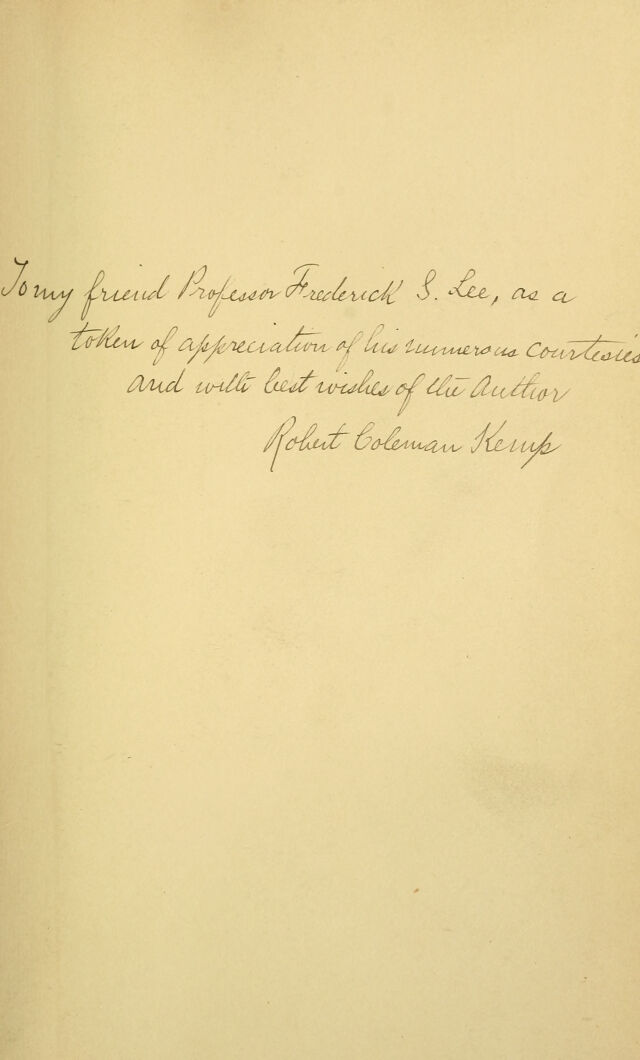 To my friend Professor Frederick S. Lee, as a
token of appreciation of his numerous courtesies
and with best wishes of the Author
Robert Coleman Kemp